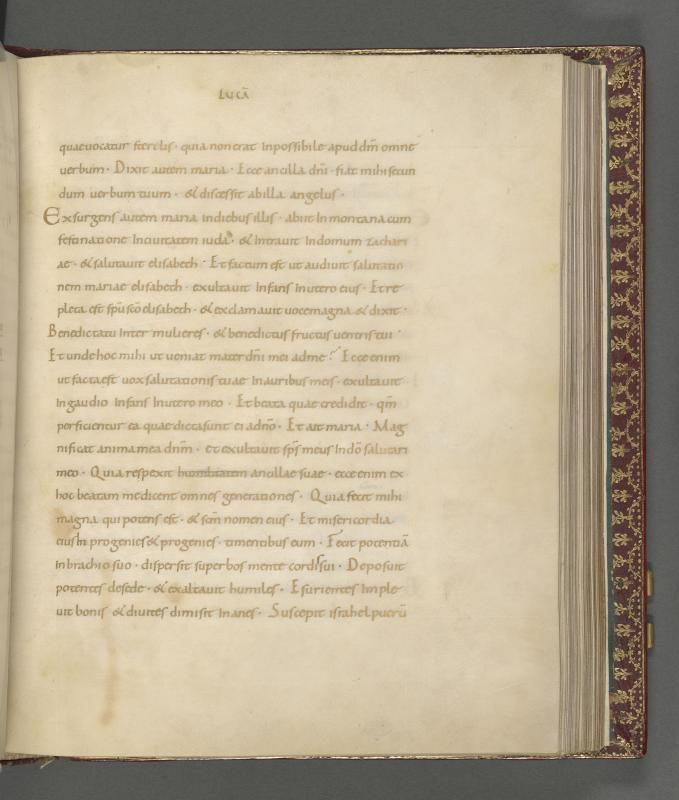 LUCĀ
quae vocatur sterelis · quia non erat inpossibile apud dm̄ omne
verbum · Dixit autem maria · Ecce ancilla dn̄i · fiat mihi secun
dum verbum tuum · & discessit ab illa angelus ·
Exsurgens autem maria in diebus illis · abiit in montana cum
festinatione in civitatem iuda · & intravit in domum zachari
ae · & salutavit elisabeth · Et factum est ut audivit salutatio
nem mariae elisabeth · exultavit infans in utero eius · Et re
pleta est spū scō elisabeth · & exclamavit voce magna & dixit ·
Benedicta tu inter mulieres · & benedictus fructus ventris tui ·
Et unde hoc mihi ut veniat mater dn̄i mei ad me? Ecce enim
ut facta est vox salutationis tuae in auribus meis · exultavit
in gaudio infans in utero meo · Et beata quae credidit · qm̄
perficientur ea quae dicta sunt ei a dn̄o · Et ait maria · Mag
nificat anima mea dnm̄ · et exultavit sp̄s meus in dō salutari
meo · Quia respexit humilitatem ancillae suae · ecce enim ex
hoc beatam me dicent omnes generationes · Quia fecit mihi
magna qui potens est · & scm̄ nomen eius · Et misericordia
eius in progenies & progenies · timentibus eum · Fecit potentiā
in brachio suo · dispersit superbos mente cordis sui · Deposuit
potentes de sede · & exaltavit humiles · Esurientes imple
vit bonis & divites dimisit inanes · Suscepit israhel puerū